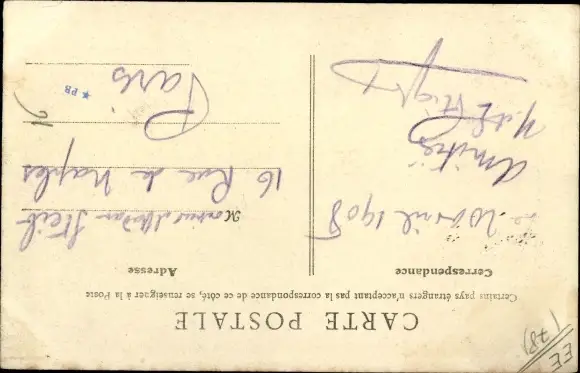 CARTE POSTALE
Certains pays étrangers n'acceptant pas la correspondance de ce côté, se renseigner à la Poste
Correspondance
Adresse
le 20 Avril 1908
Amitiés
M
16 Rue de Naples
Paris
* PB
EE
(78)